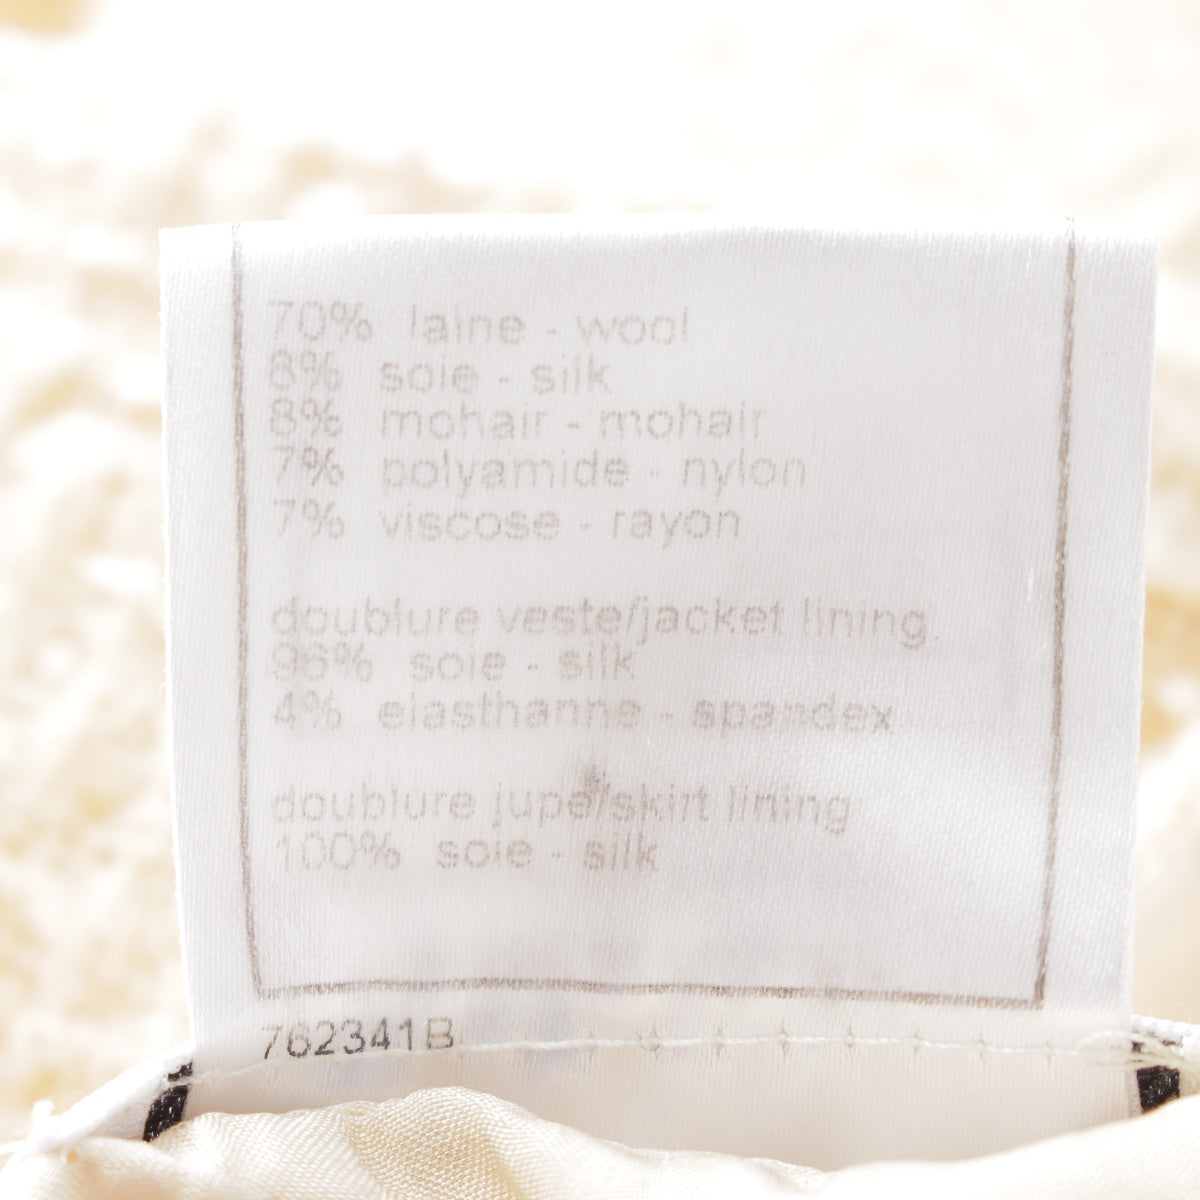 70% laine - wool
8% soie - silk
8% mohair - mohair
7% polyamide - nylon
7% viscose - rayon
doublure veste/jacket lining
96% soie - silk
4% elasthanne - spandex
doublure jupe/skirt lining
100% soie - silk
762341B